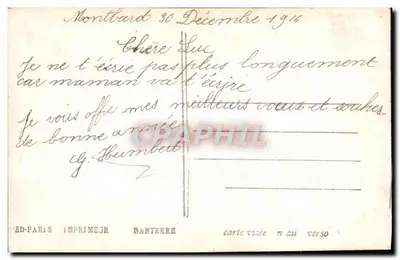 Montbard 30 Décembre 1916
Chère Luc
Je ne t'écrie pas plus longuement
car maman va t'écrire
Je vous offre mes meilleurs voeux et souhes
de bonne année
G. Humbert
CPAPHIL
ED-PARIS IMPRIMEUR NANTERRE carte visée n au verso